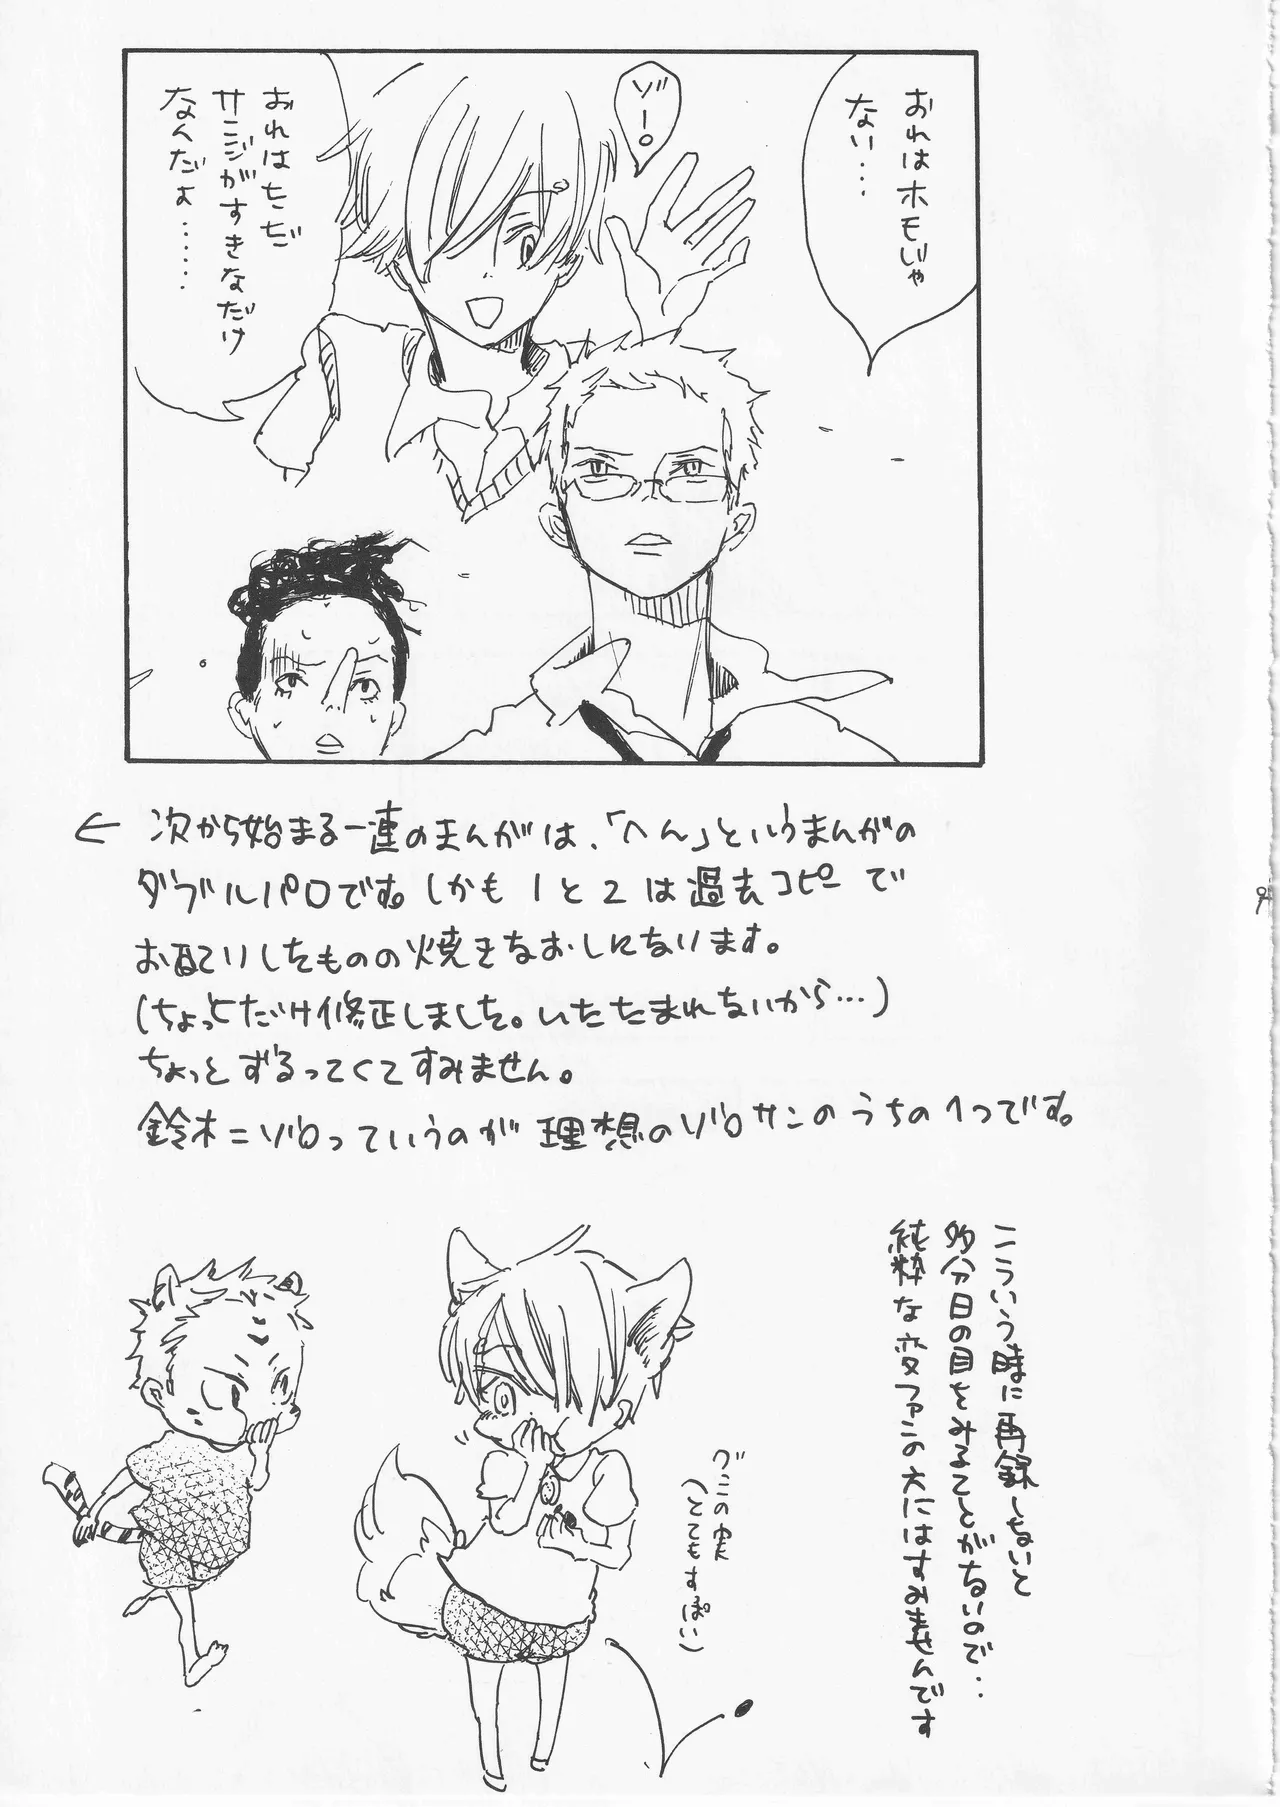 おれはホモじゃ
ない・・・
ゾーロ
おれはただ
サンジがすきなだけ
なんだよ……
← 次から始まる一連のまんがは、「へん」というまんがの
ダブルパロです。しかも1と2は過去コピーで
お配りしたものの焼きなおしになります。
(ちょっとだけ修正しました。いたたまれないから…)
ちょっとずるってくてすみません。
鈴木=ゾロっていうのが理想のゾロサンのうちの1つです。
こういう時に再録しないと
多分日の目をみることがないので・・
純粋な変ファンの方にはすみませんです
グミの実
(とてもすぱい)